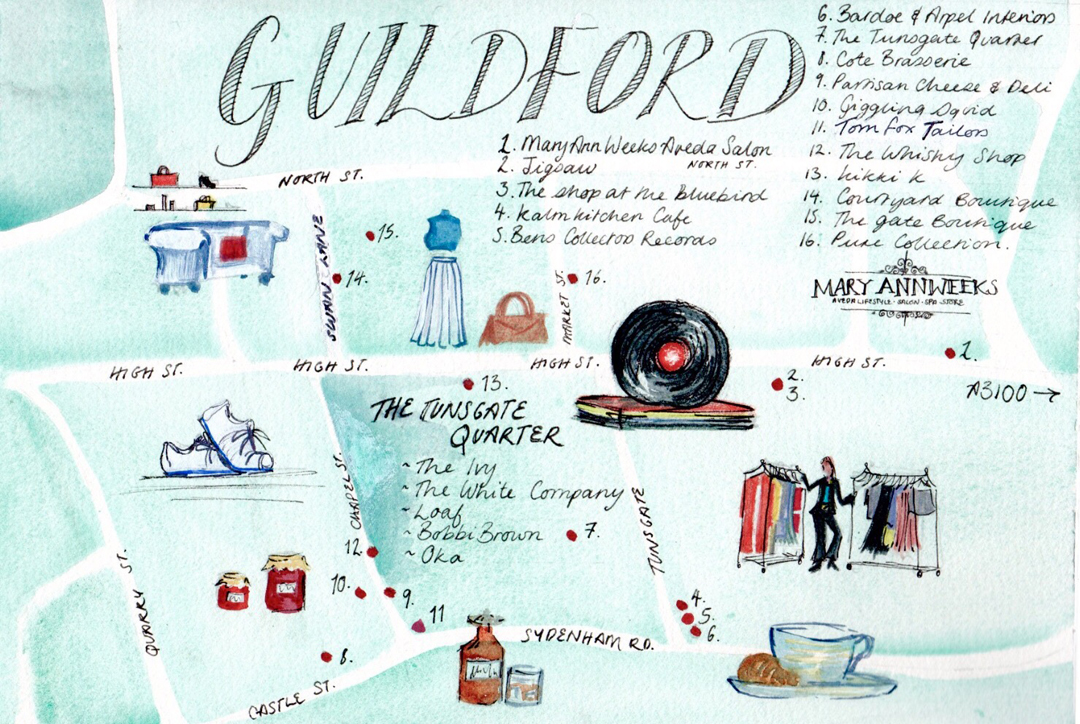 GUILDFORD
1. MaryAnn Weeks Aveda Salon
2. Jigsaw
3. The shop at the bluebird
4. Kalm kitchen Cafe
5. Bens Collectors Records
6. Bardoe & Appel Interiors
7. The Tunsgate Quarter
8. Cote Brasserie
9. Partisan Cheese & Deli
10. Giggling Squid
11. Tom Fox Tailors
12. The Whisky Shop
13. Kikki K
14. Courtyard Boutique
15. The gate Boutique
16. Pure Collection.
NORTH ST.
NORTH ST.
SWAN LANE
15.
14.
MARKET ST.
16.
MARY ANN WEEKS
AVEDA LIFESTYLE · SALON · SPA · STORE
1.
HIGH ST.
HIGH ST.
HIGH ST.
HIGH ST.
A3100 →
13.
2.
3.
THE TUNSGATE
QUARTER
~ The Ivy
~ The White Company
~ Loaf
~ Bobbi Brown
~ Oka
7.
CHAPEL ST.
TUNSGATE
12.
10.
9.
11
4.
5.
6.
QUARRY ST.
8.
SYDENHAM RD.
CASTLE ST.